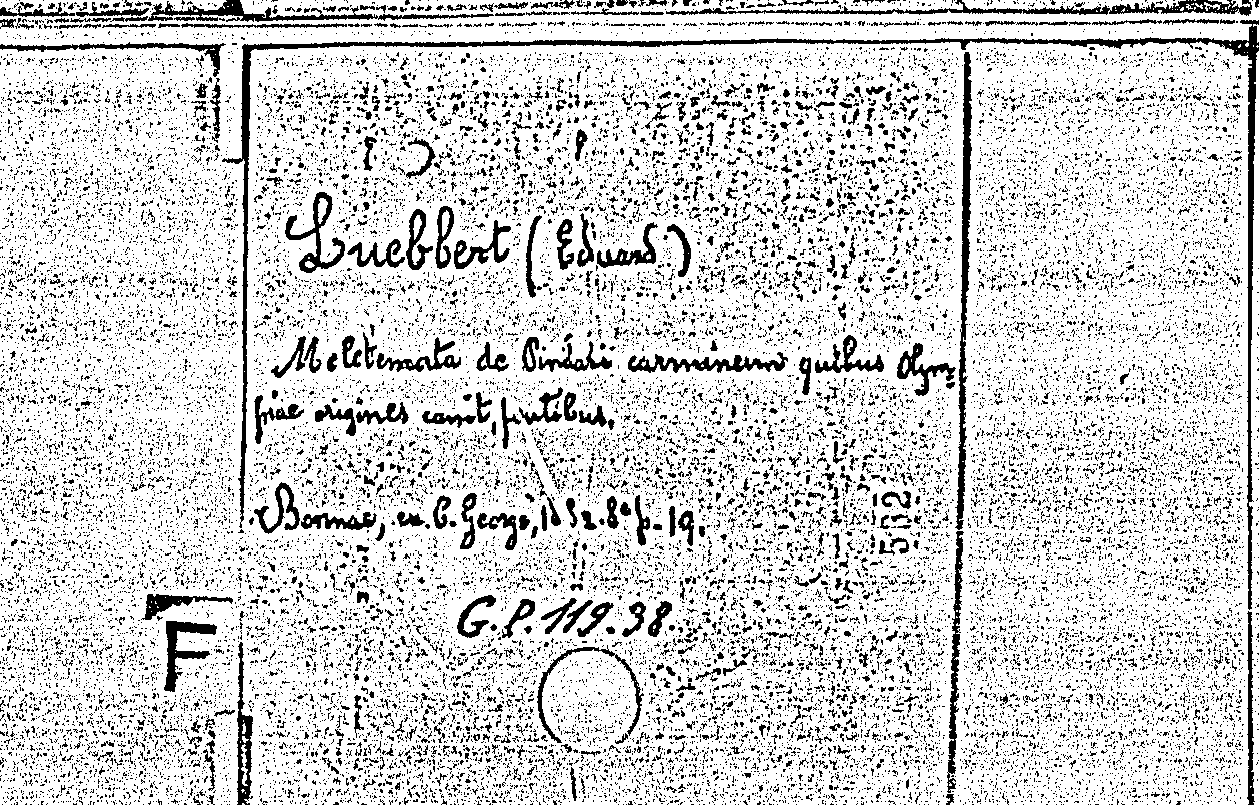 Luebbert (Eduard)
Meletemata de Pindari carminum quibus Olym=
piae origines canit, fontibus.
Bonnae, ex. C. Georgi, 1882. 8° p. 19.
512
G.P. 119.38.
F